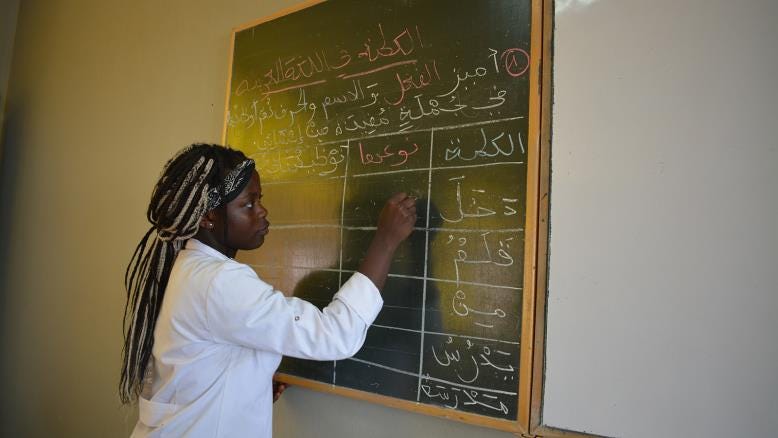 الكلمة في اللغة العربية
١ أميز الفعل والاسم والحرف ثم أوظفه
في جُمْلَةٍ مُفِيدَة مِنْ إِنْشَائِي
الكلمة نوعها توظيفها
دَخَلَ
قَلَمٌ
مِنْ
يَدْرُسُ
مَدْرَسَةٌ